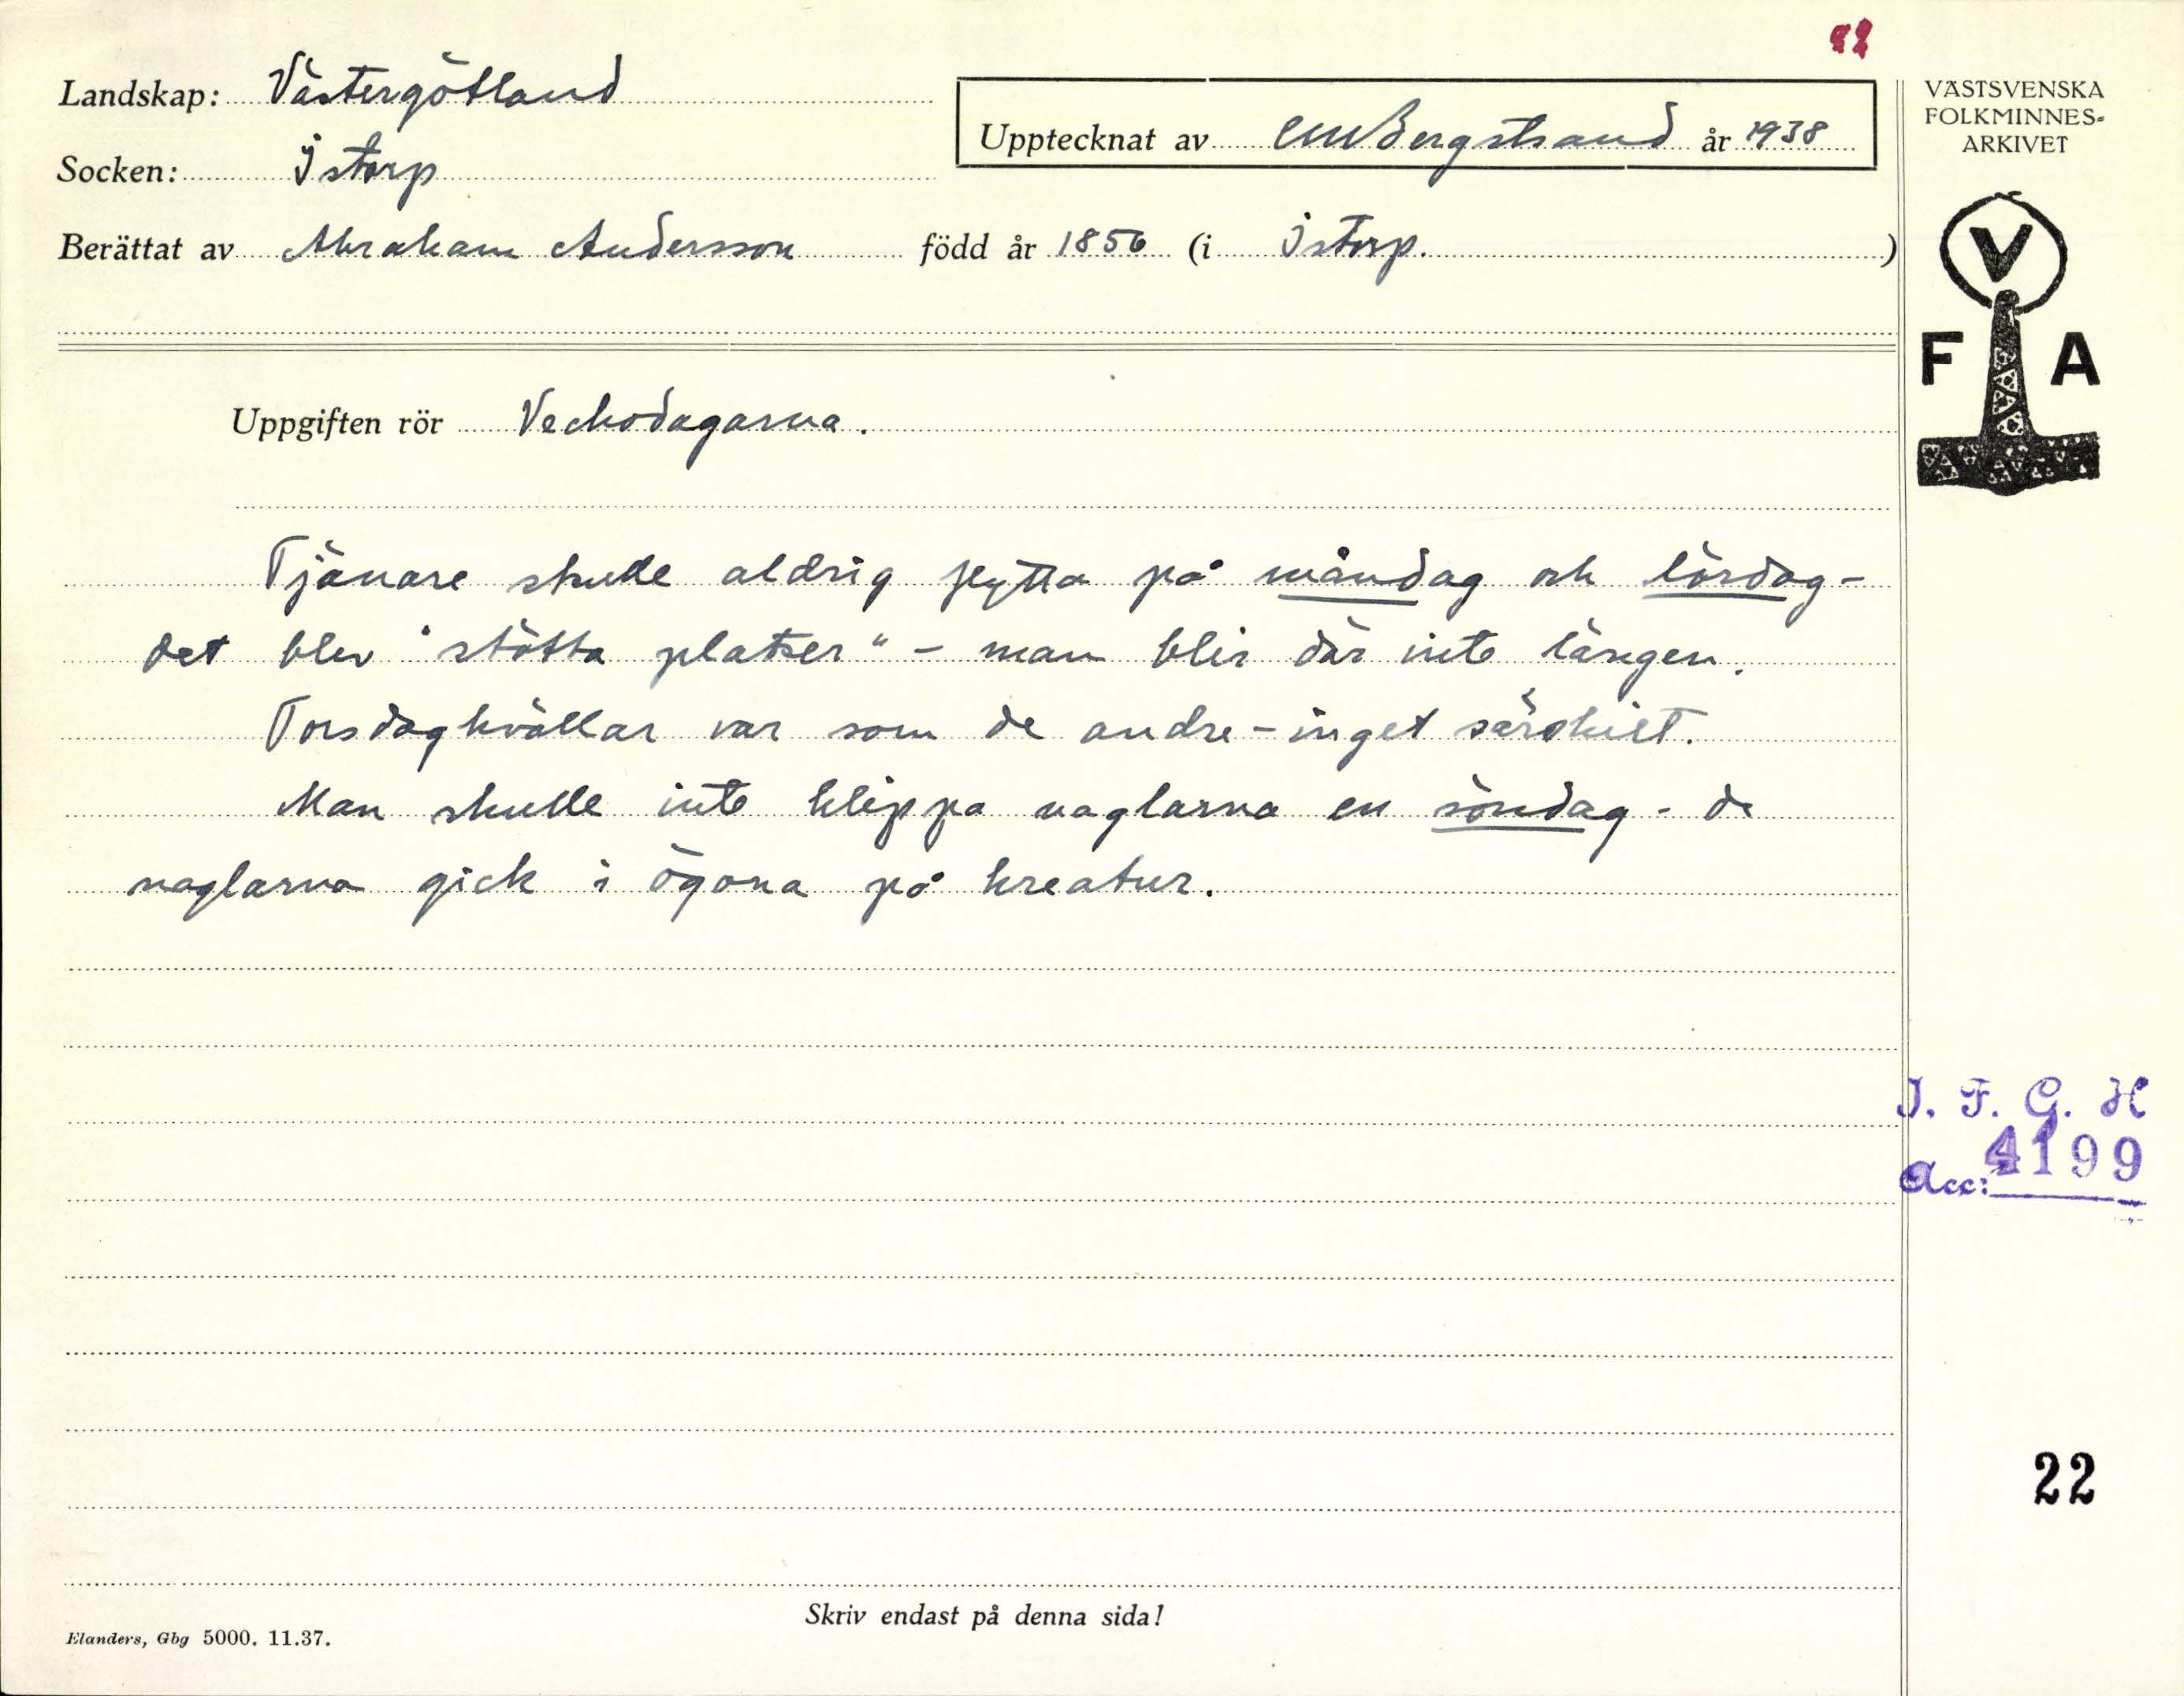 Landskap: Västergötland
Socken: Istorp
Upptecknat av CMBergstrand år 1938
Berättat av Abraham Andersson född år 1856 (i Istorp.)
VÄSTSVENSKA
FOLKMINNES-
ARKIVET
V
F A
Uppgiften rör Veckodagarna.
Tjänare skulle aldrig flytta på måndag och lördag -
det blev "stötta platser" - man blir där inte längen.
Torsdagkvällar var som de andre - inget särskilt.
Man skulle inte klippa naglarna en söndag - de
naglarna gick i ögona på kreatur.
I. F. G. H
Acc: 4199
22
Skriv endast på denna sida!
Elanders, Gbg 5000. 11.37.